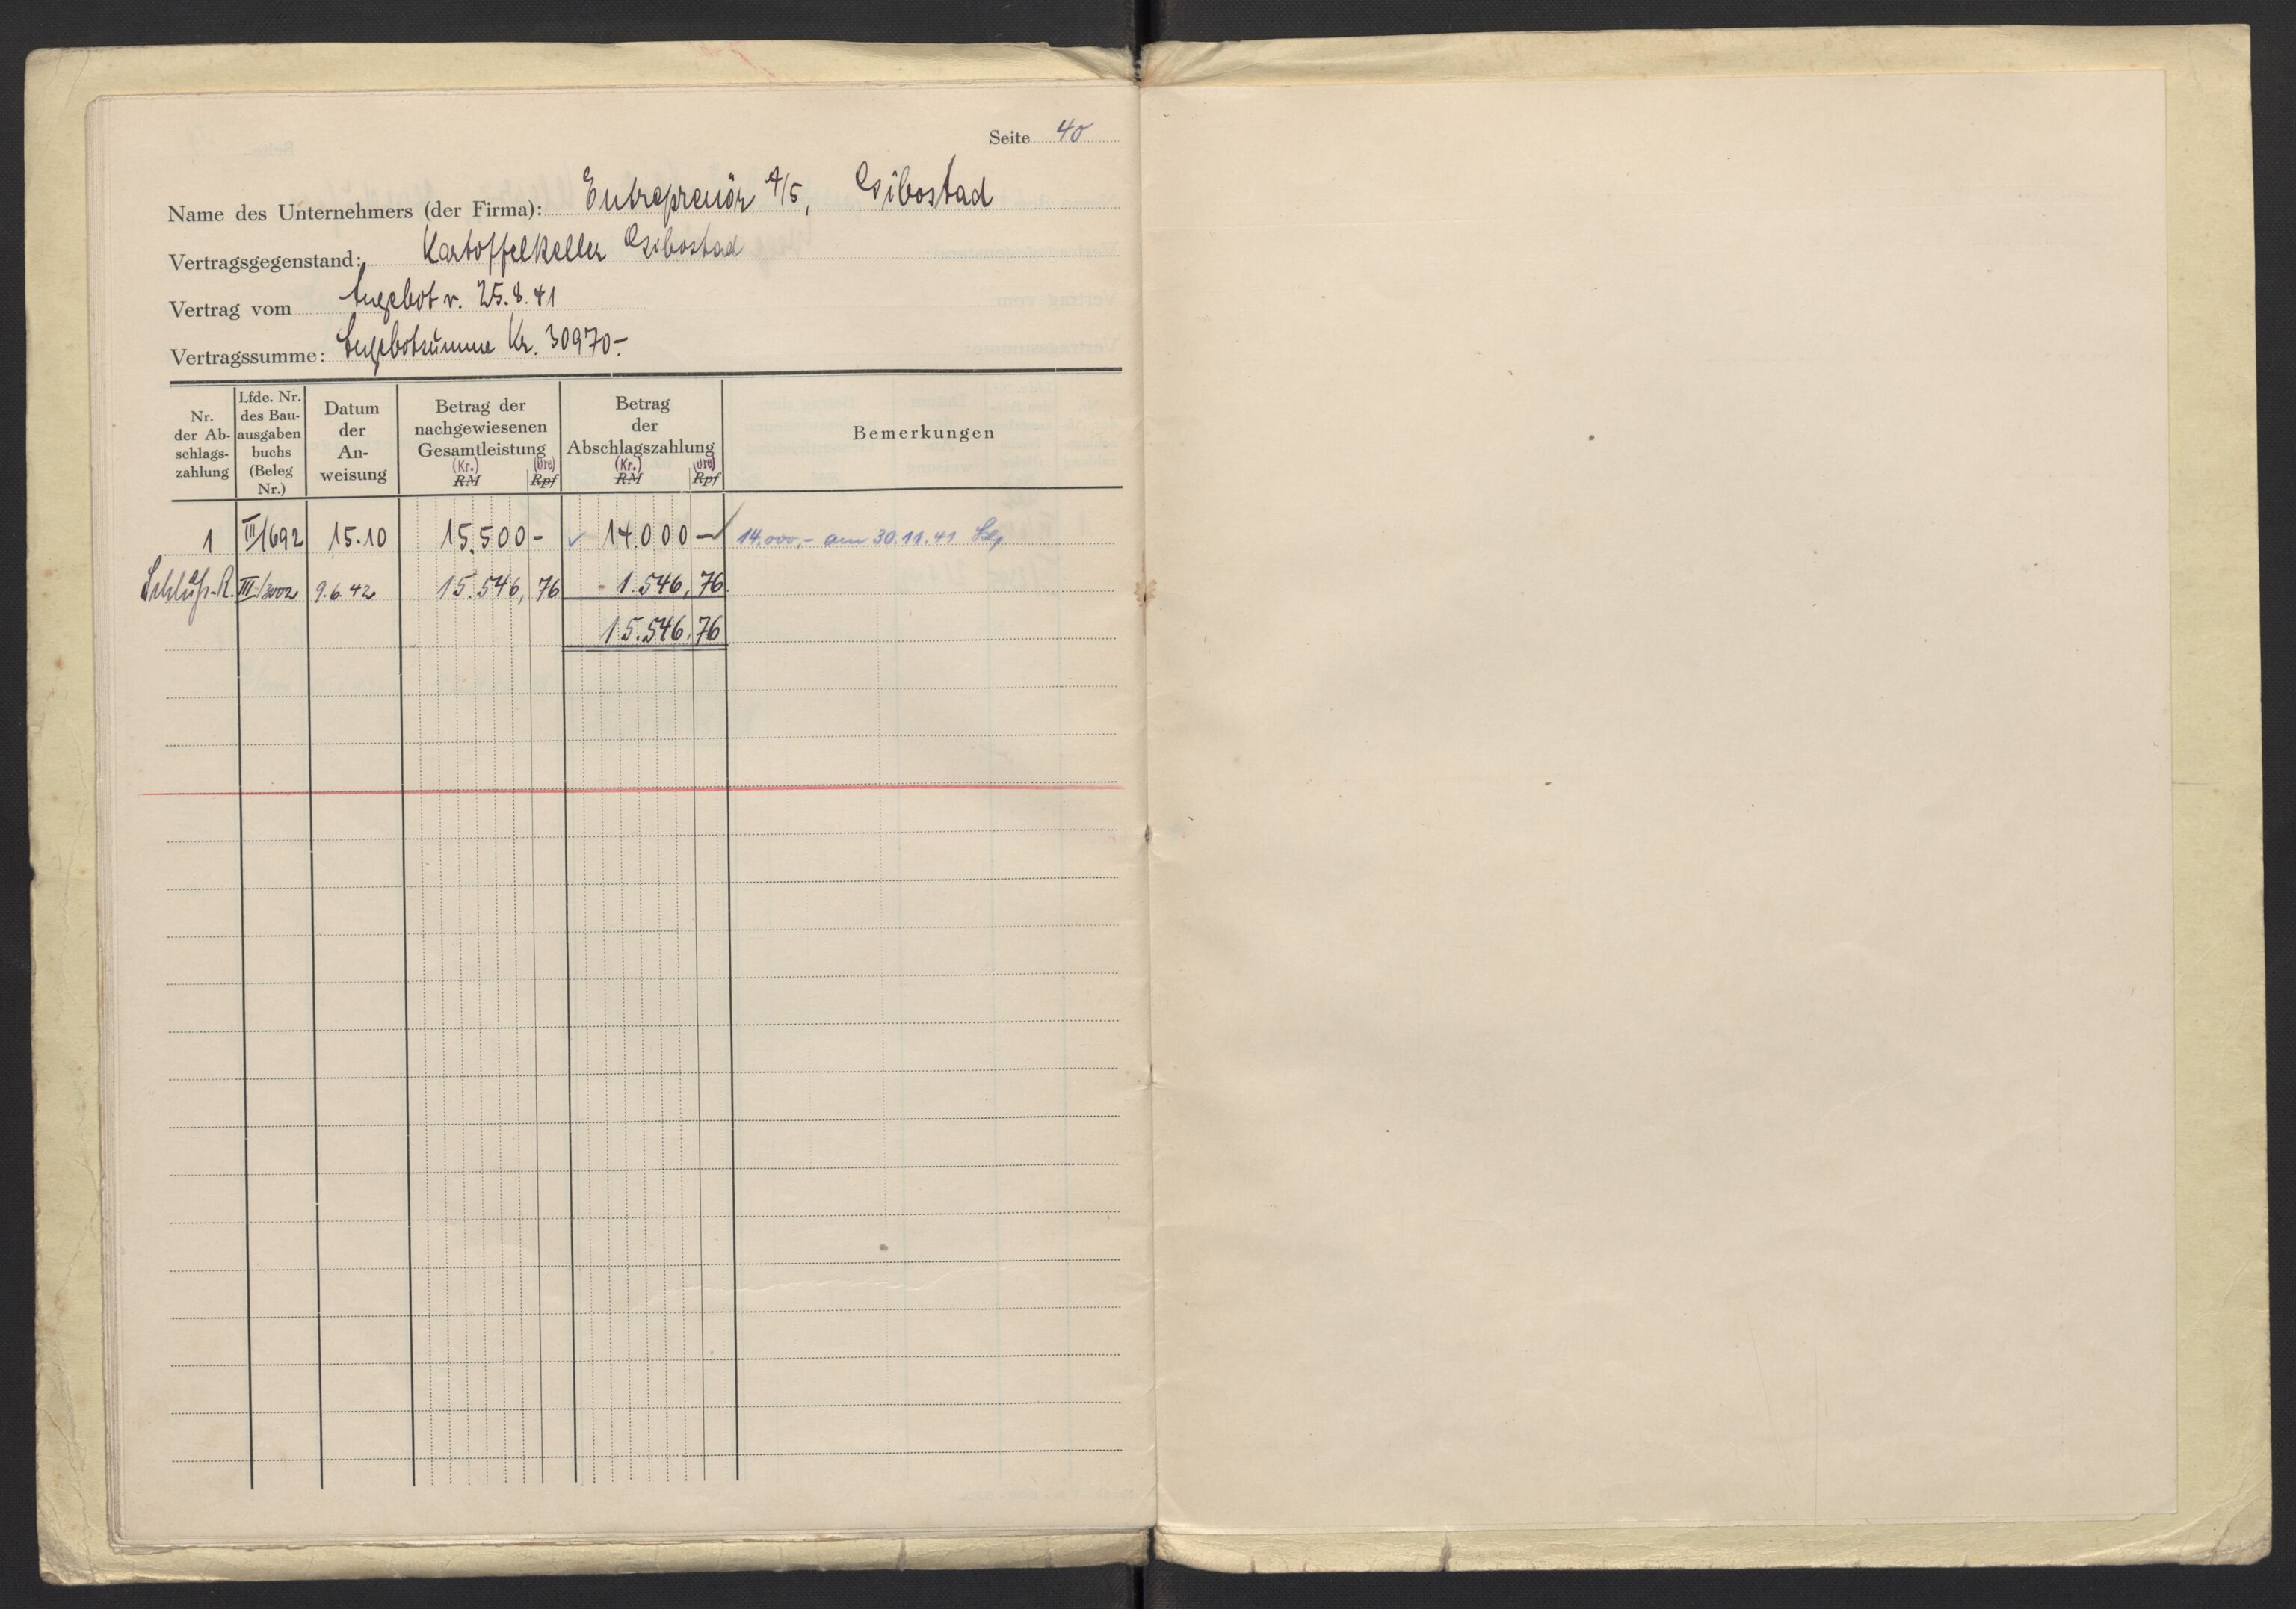 Seite 40
Name des Unternehmers (der Firma): Entreprenör A/S, Gsibostad
Vertragsgegenstand: Kartoffelkeller Gsibostad
Vertrag vom Angebot v. 25.8.41
Vertragssumme: Angebotsumme Kr. 30970.-
Nr. der Ab-schlags-zahlung
Lfde. Nr. des Bau-ausgaben buchs (Beleg Nr.)
Datum der An-weisung
Betrag der nachgewiesenen Gesamtleistung (Kr.) RM (Öre) Rpf
Betrag der Abschlagszahlung (Kr.) RM (Öre) Rpf
Bemerkungen
1 III/692 15.10 15.500 - 14.000 - 14.000,- am 30.11.41
Schluß-R. III/3002 9.6.42 15.546, 76 - 1.546, 76
15.546. 76